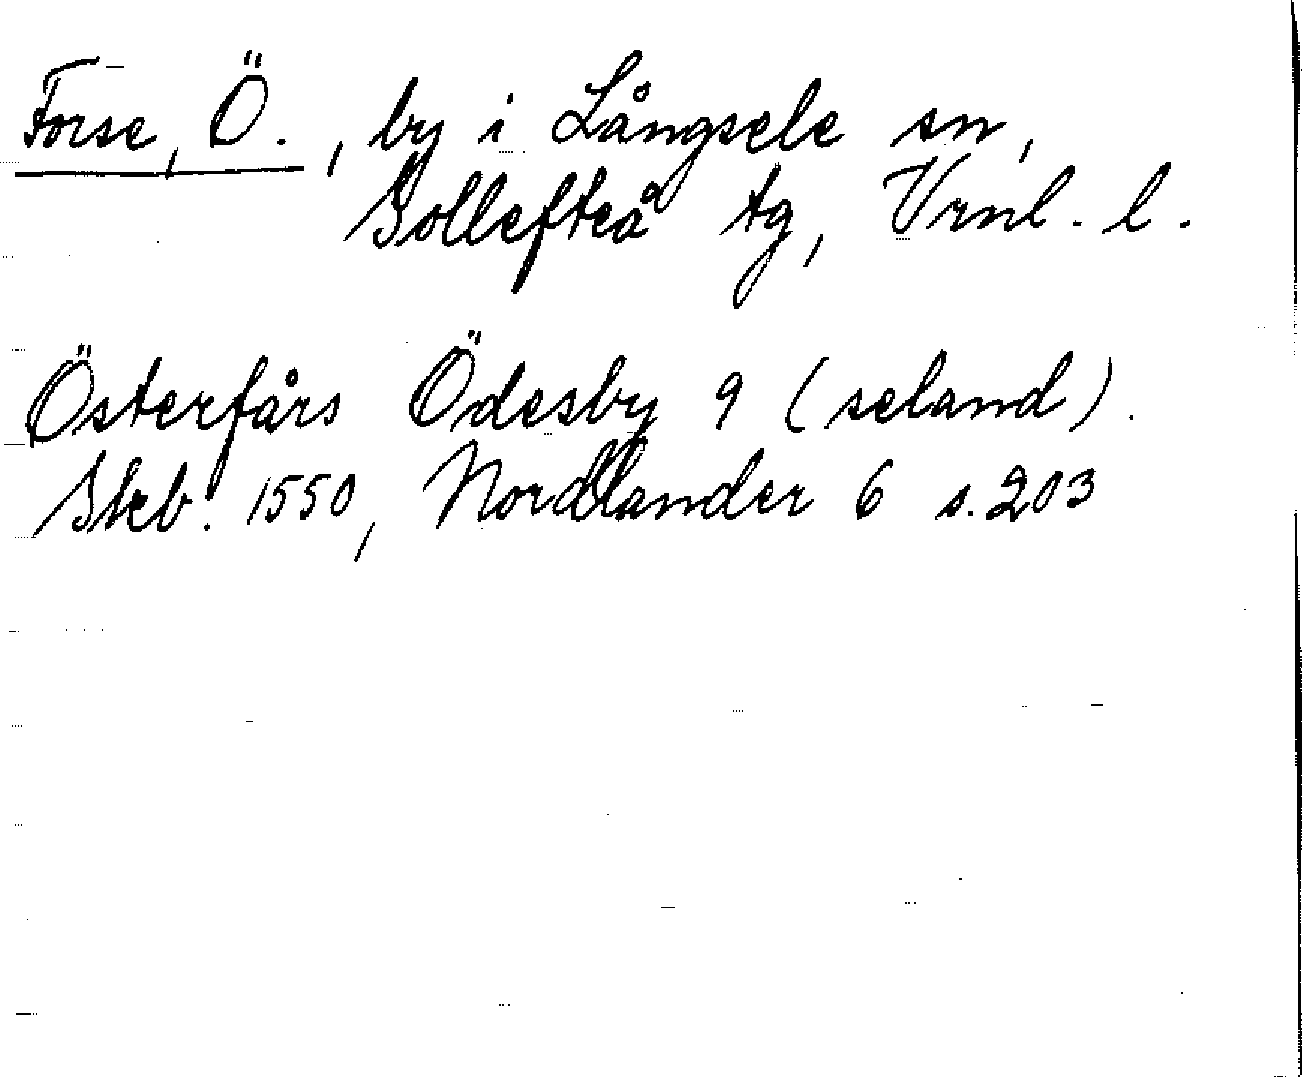 Forse, Ö., by i Långsele sn,
Sollefteå tg, Vrnl. l.
Österfårs Ödesby 9 (seland).
Skb. 1550, Nordlander 6 s. 203